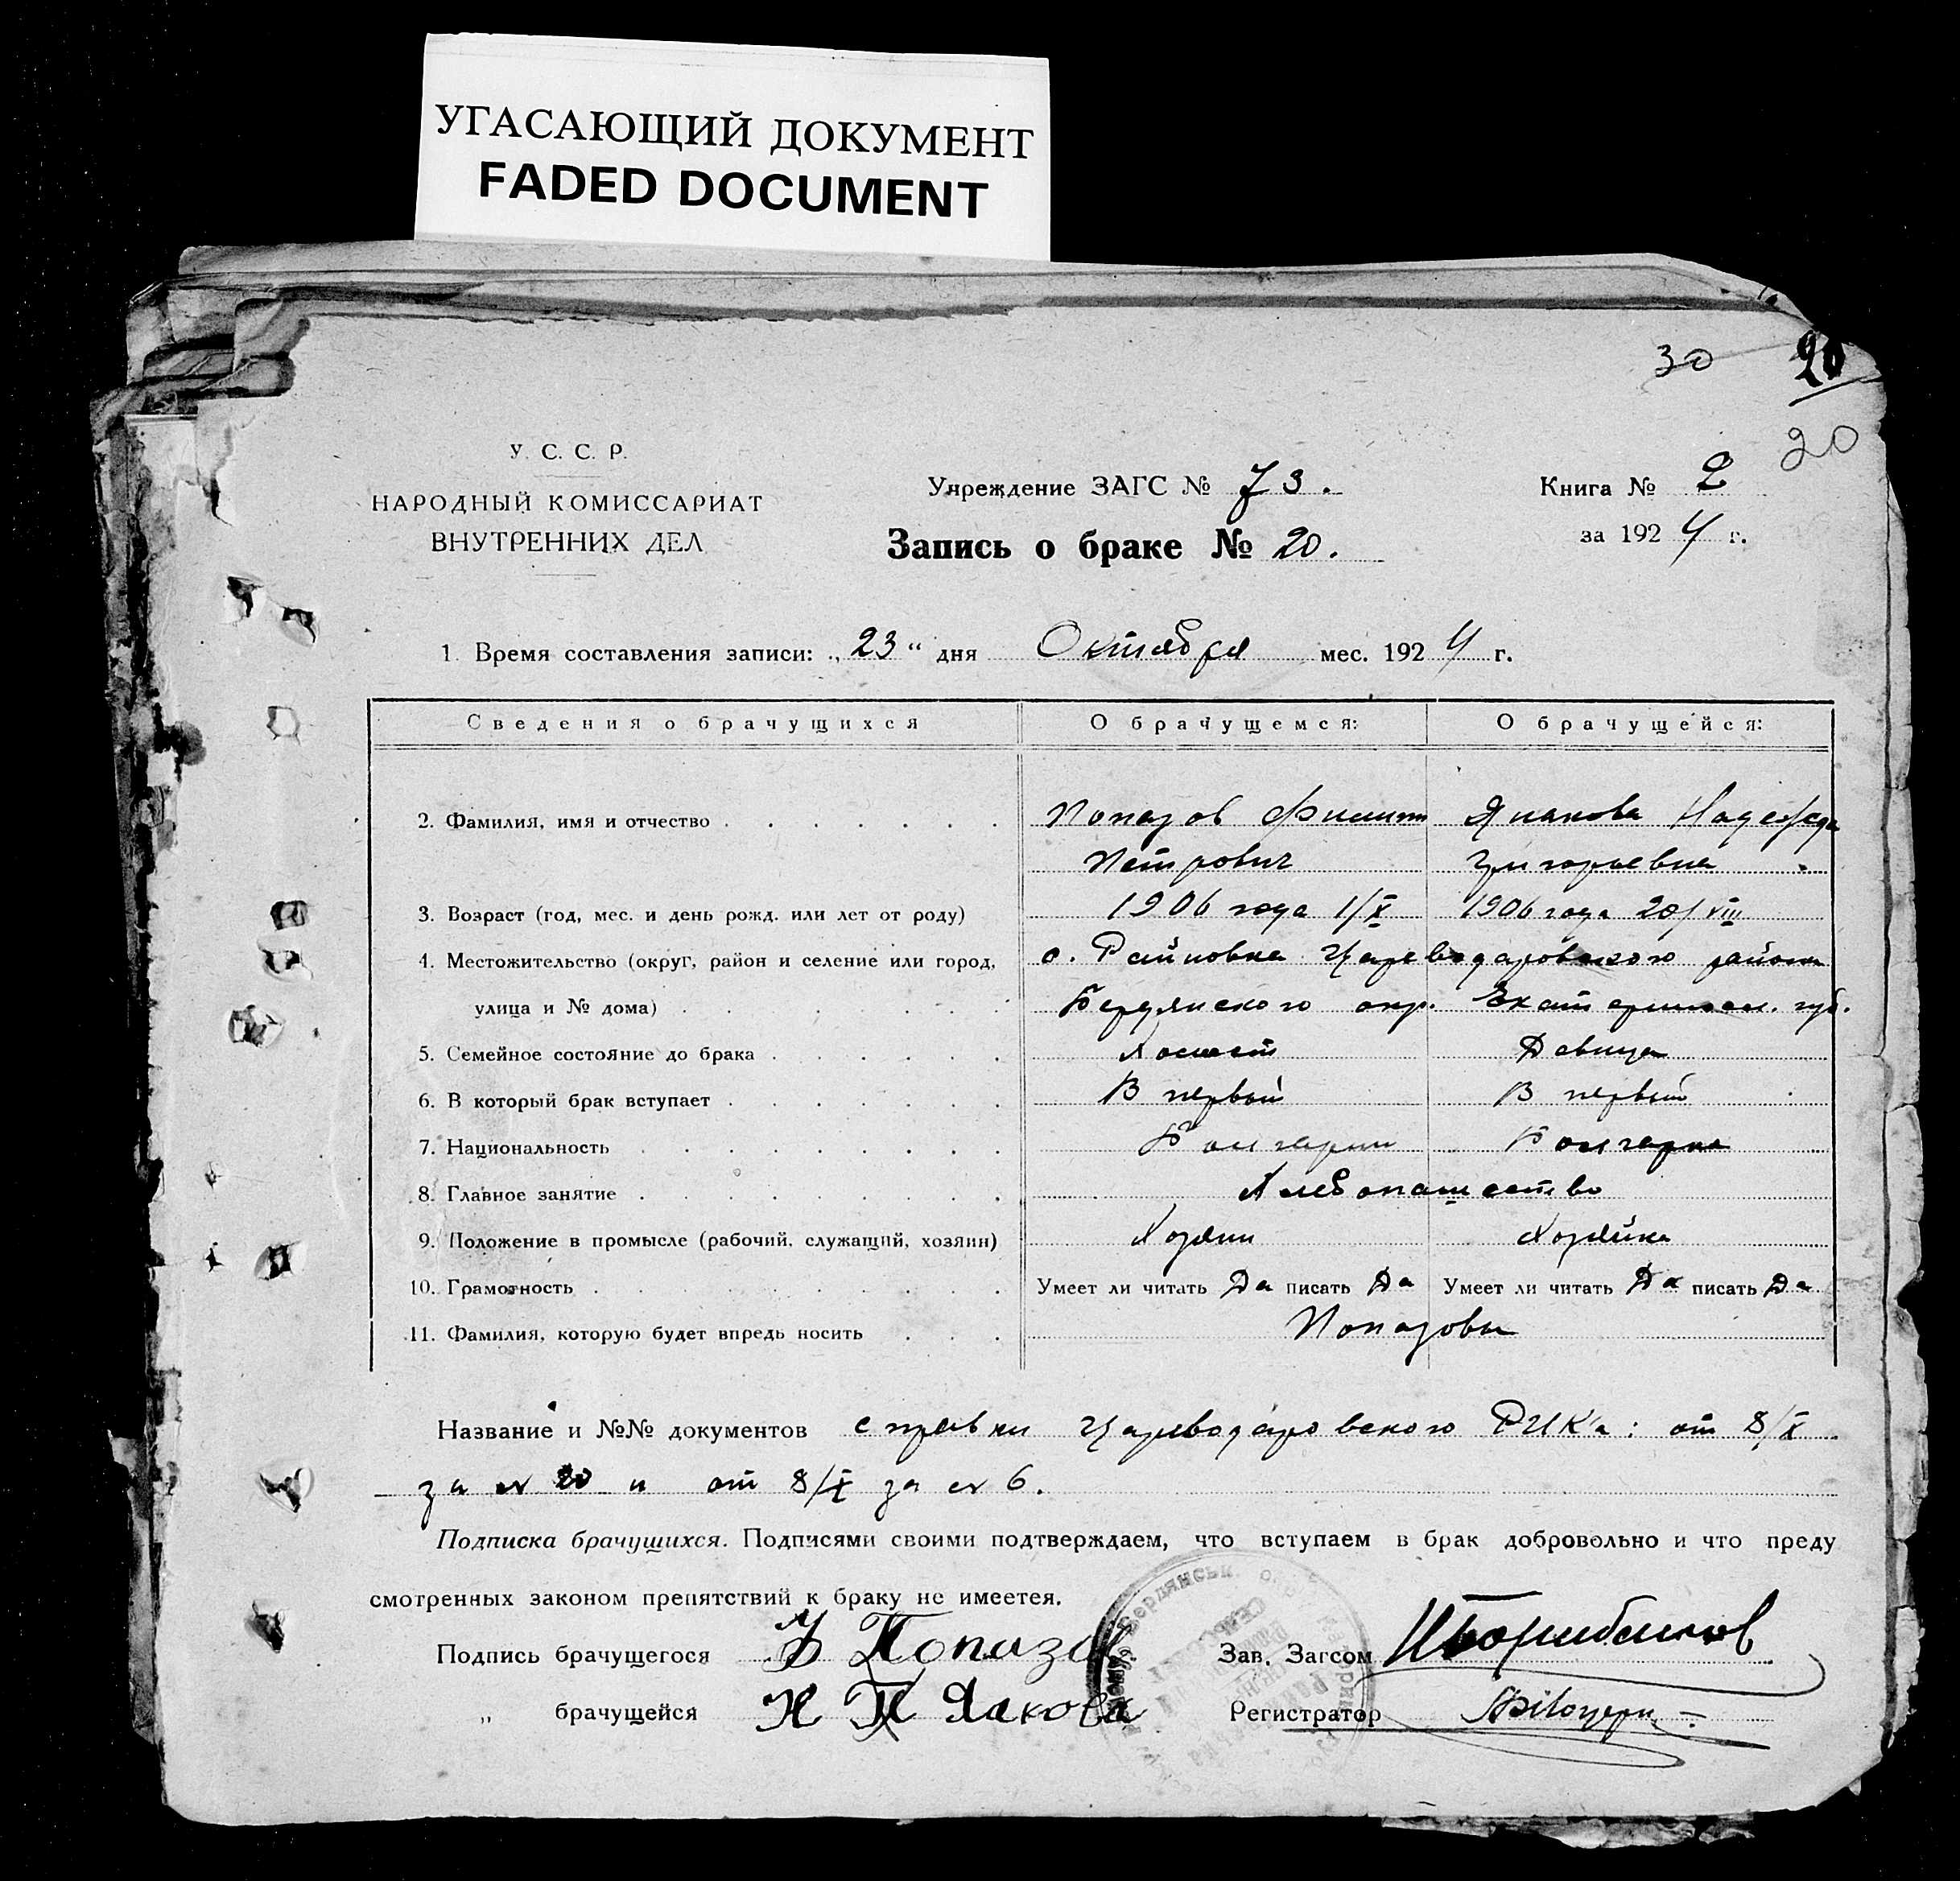 УГАСАЮЩИЙ ДОКУМЕНТ
FADED DOCUMENT
30 20
20
У. С. С. Р.
НАРОДНЫЙ КОМИССАРИАТ
ВНУТРЕННИХ ДЕЛ
Учреждение ЗАГС № 73.
Запись о браке № 20.
Книга № 2
за 1924 г.
1. Время составления записи: „23" дня Октября мес. 1924 г.
Сведения о брачущихся О брачущемся: О брачущейся:
2. Фамилия, имя и отчество Попазов Филипп Якакова Надежда
Петрович Григорьевна
3. Возраст (год, мес. и день рожд. или лет от роду) 1906 года 1/X 1906 года 20/VIII
4. Местожительство (округ, район и селение или город, с. Райновка Цареводаровского района
улица и № дома) Бердянского окр. Екатериносл. губ.
5. Семейное состояние до брака Холост Девица
6. В который брак вступает В первый В первый
7. Национальность Болгарин Болгарка
8. Главное занятие Хлебопашество
9. Положение в промысле (рабочий, служащий, хозяин) Хозяин Хозяйка
10. Грамотность Умеет ли читать Да писать Да Умеет ли читать Да писать Да
11. Фамилия, которую будет впредь носить Попазовы
Название и №№ документов справки Цареводаровского РИК'а: от 8/X
за № 20 и от 8/X за № 6.
Подписка брачущихся. Подписями своими подтверждаем, что вступаем в брак добровольно и что преду
смотренных законом препятствий к браку не имеется.
Подпись брачущегося Попазов
Зав. Загсом
„ брачущейся Н
Регистратор